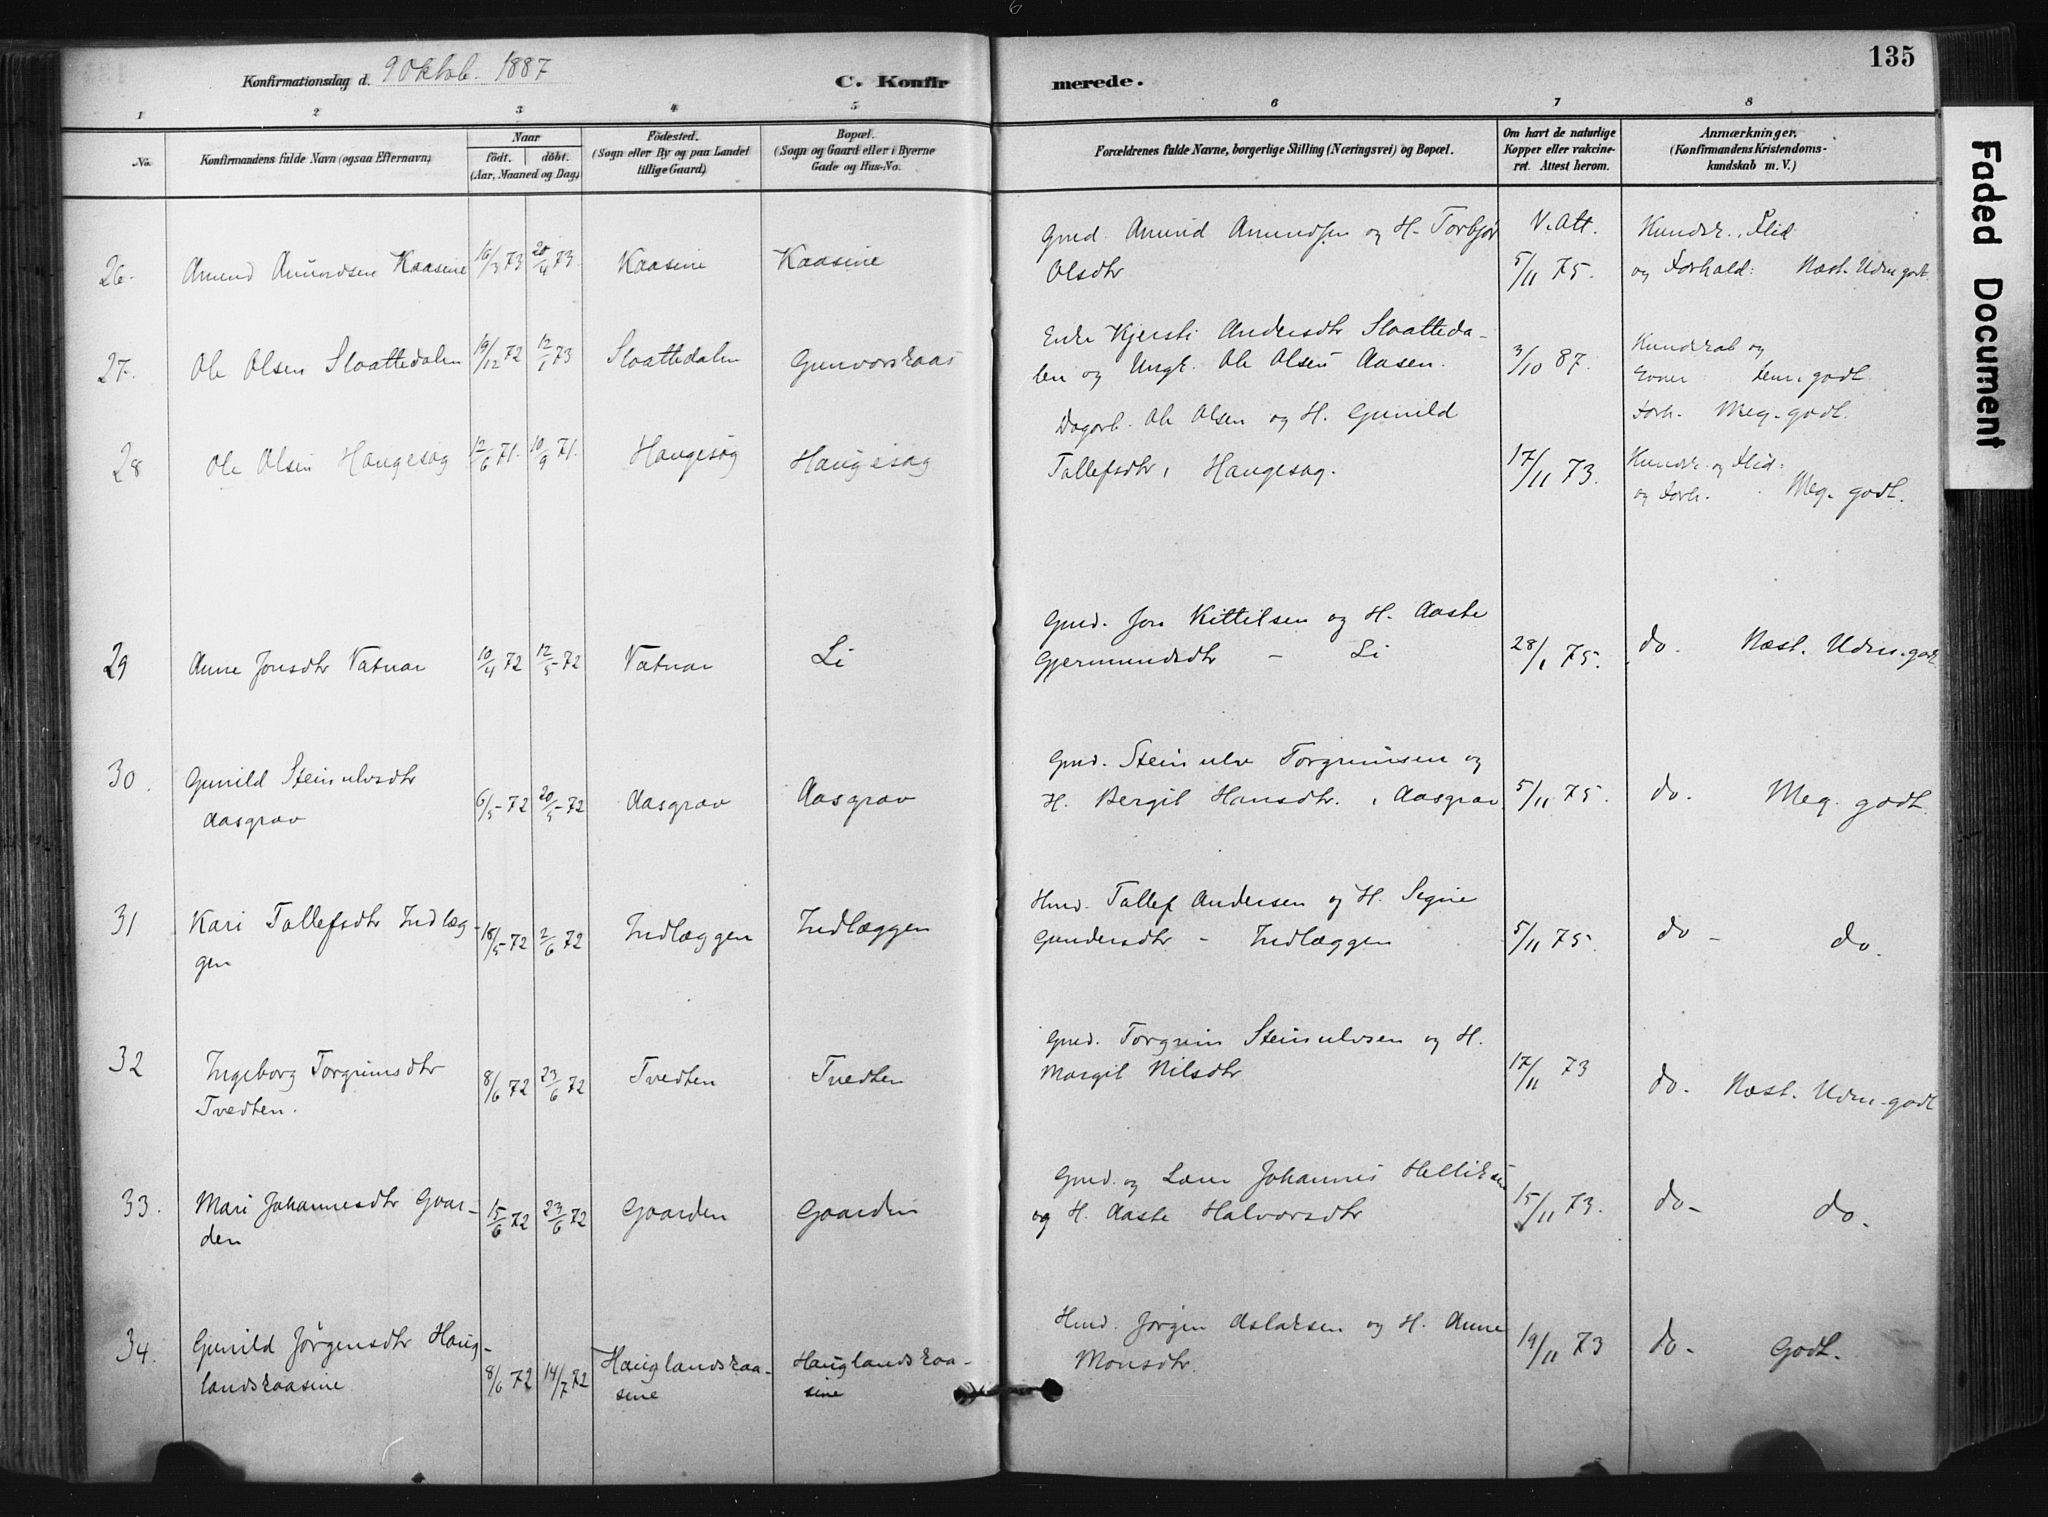 135
Konfirmationsdag d. 9 Oktob. 1887
C. Konfir
merede.
1 2 3 4 5 6 7 8
No.
Konfirmandens fulde Navn (ogsaa Efternavn)
Naar
födt. döbt.
(Aar, Maaned og Dag)
Födested.
(Sogn eller By og paa Landet
tillige Gaard)
Bopæl.
(Sogn og Gaard eller i Byerne
Gade og Hus-No.
Forældrenes fulde Navne, borgerlige Stilling (Næringsvei) og Bopæl.
Om havt de naturlige
Kopper eller vakcine-
ret. Attest herom.
Anmærkninger.
(Konfirmandens Kristendoms-
kundskab m. V.)
Faded Document
Gmd. Amund Amundsen og H. Torbjør
V. Att.
Kundsk., Flid
26. Amund Amundsen Kaasine 16/3 73 20/4 73. Kaasine Kaasine
Olsdtr
5/11 75.
og Forhold: Næst. Udm. godt.
Enke Kjersti Andersdtr Slaatteda-
27. Ole Olsen Slaattedalen 19/12 72 12/1 73 Slaattedalen Gunvorskaas
len og Ungk. Ole Olsen Aasen.
3/10 87.
Kundskab og
Evner Tem. godt.
Forh. Meg. godt.
Dagarb. Ole Olsen og H. Gunild
28 Ole Olsen Haugesag 12/6 71. 10/9 71. Haugesag Haugesag
Tollefsdtr, Haugesag.
17/11 73.
Kundsk. og Flid:
og Forh. Meg. godt.
Gmd. Jon Kittilsen og H. Aaste
29 Anne Jonsdtr Vatnar 10/4 72 12/5 72 Vatnar Li
Gjermundsdtr - Li
28/1 75. do. Næst. Udm. godt
Gmd. Steinulv Torgrimsen og
30. Gunild Steinulvsdtr
Aasgrav
6/5 72 20/5 72 Aasgrav Aasgrav
H. Bergit Hansdtr., Aasgrav 5/11 75. do. Meg. godt.
Hmd. Tollef Andersen og H. Signe
31 Kari Tollefsdtr Indlæg-
gen
18/5 72 2/6 72 Indlæggen Indlæggen
Gundersdtr - Indlæggen 5/11 75. do - do.
Gmd. Torgrim Steinulvsen og H.
32 Ingeborg Torgrimsdtr
Tvedten.
8/6 72 23/6 72 Tvedten Tvedten
Margit Nilsdtr 17/11 73 do. Næst. Udm. godt
Gmd. og Læn Johannes Helliksen
33. Mari Johannesdtr Gaar-
den
15/6 72 23/6 72 Gaarden Gaarden
og H. Aaste Halvorsdtr 15/11 73. do - do.
Hmd. Jørgen Aslaksen og H. Anne
34. Gunild Jørgensdtr Haug-
landskaasine
8/6 72 14/7 72 Hauglandskaa-
sine
Hauglandskaa-
sine
Monsdtr. 19/11 73 do - Godt.